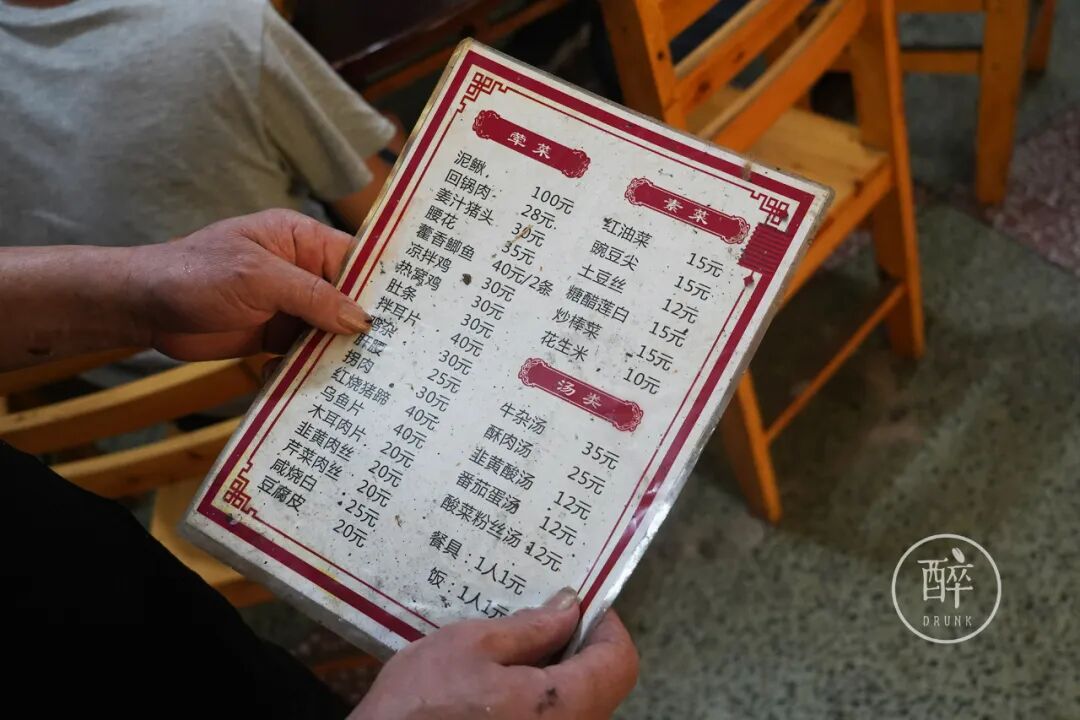 荤菜
泥鳅 100元
回锅肉 28元
姜汁猪头 30元
腰花 35元
藿香鲫鱼 40元/2条
凉拌鸡 30元
热窝鸡 30元
肚条 30元
拌耳片 40元
杂 30元
肝腰 25元
拐肉 30元
红烧猪蹄 40元
乌鱼片 40元
木耳肉片 20元
韭黄肉丝 20元
芹菜肉丝 20元
咸烧白 25元
豆腐皮 20元
素菜
红油菜 15元
豌豆尖 15元
土豆丝 12元
糖醋莲白 15元
炒棒菜 15元
花生米 10元
汤类
牛杂汤 35元
酥肉汤 25元
韭黄酸汤 12元
番茄蛋汤 12元
酸菜粉丝汤 12元
餐具：1人1元
饭：1人1元
醉
DRUNK